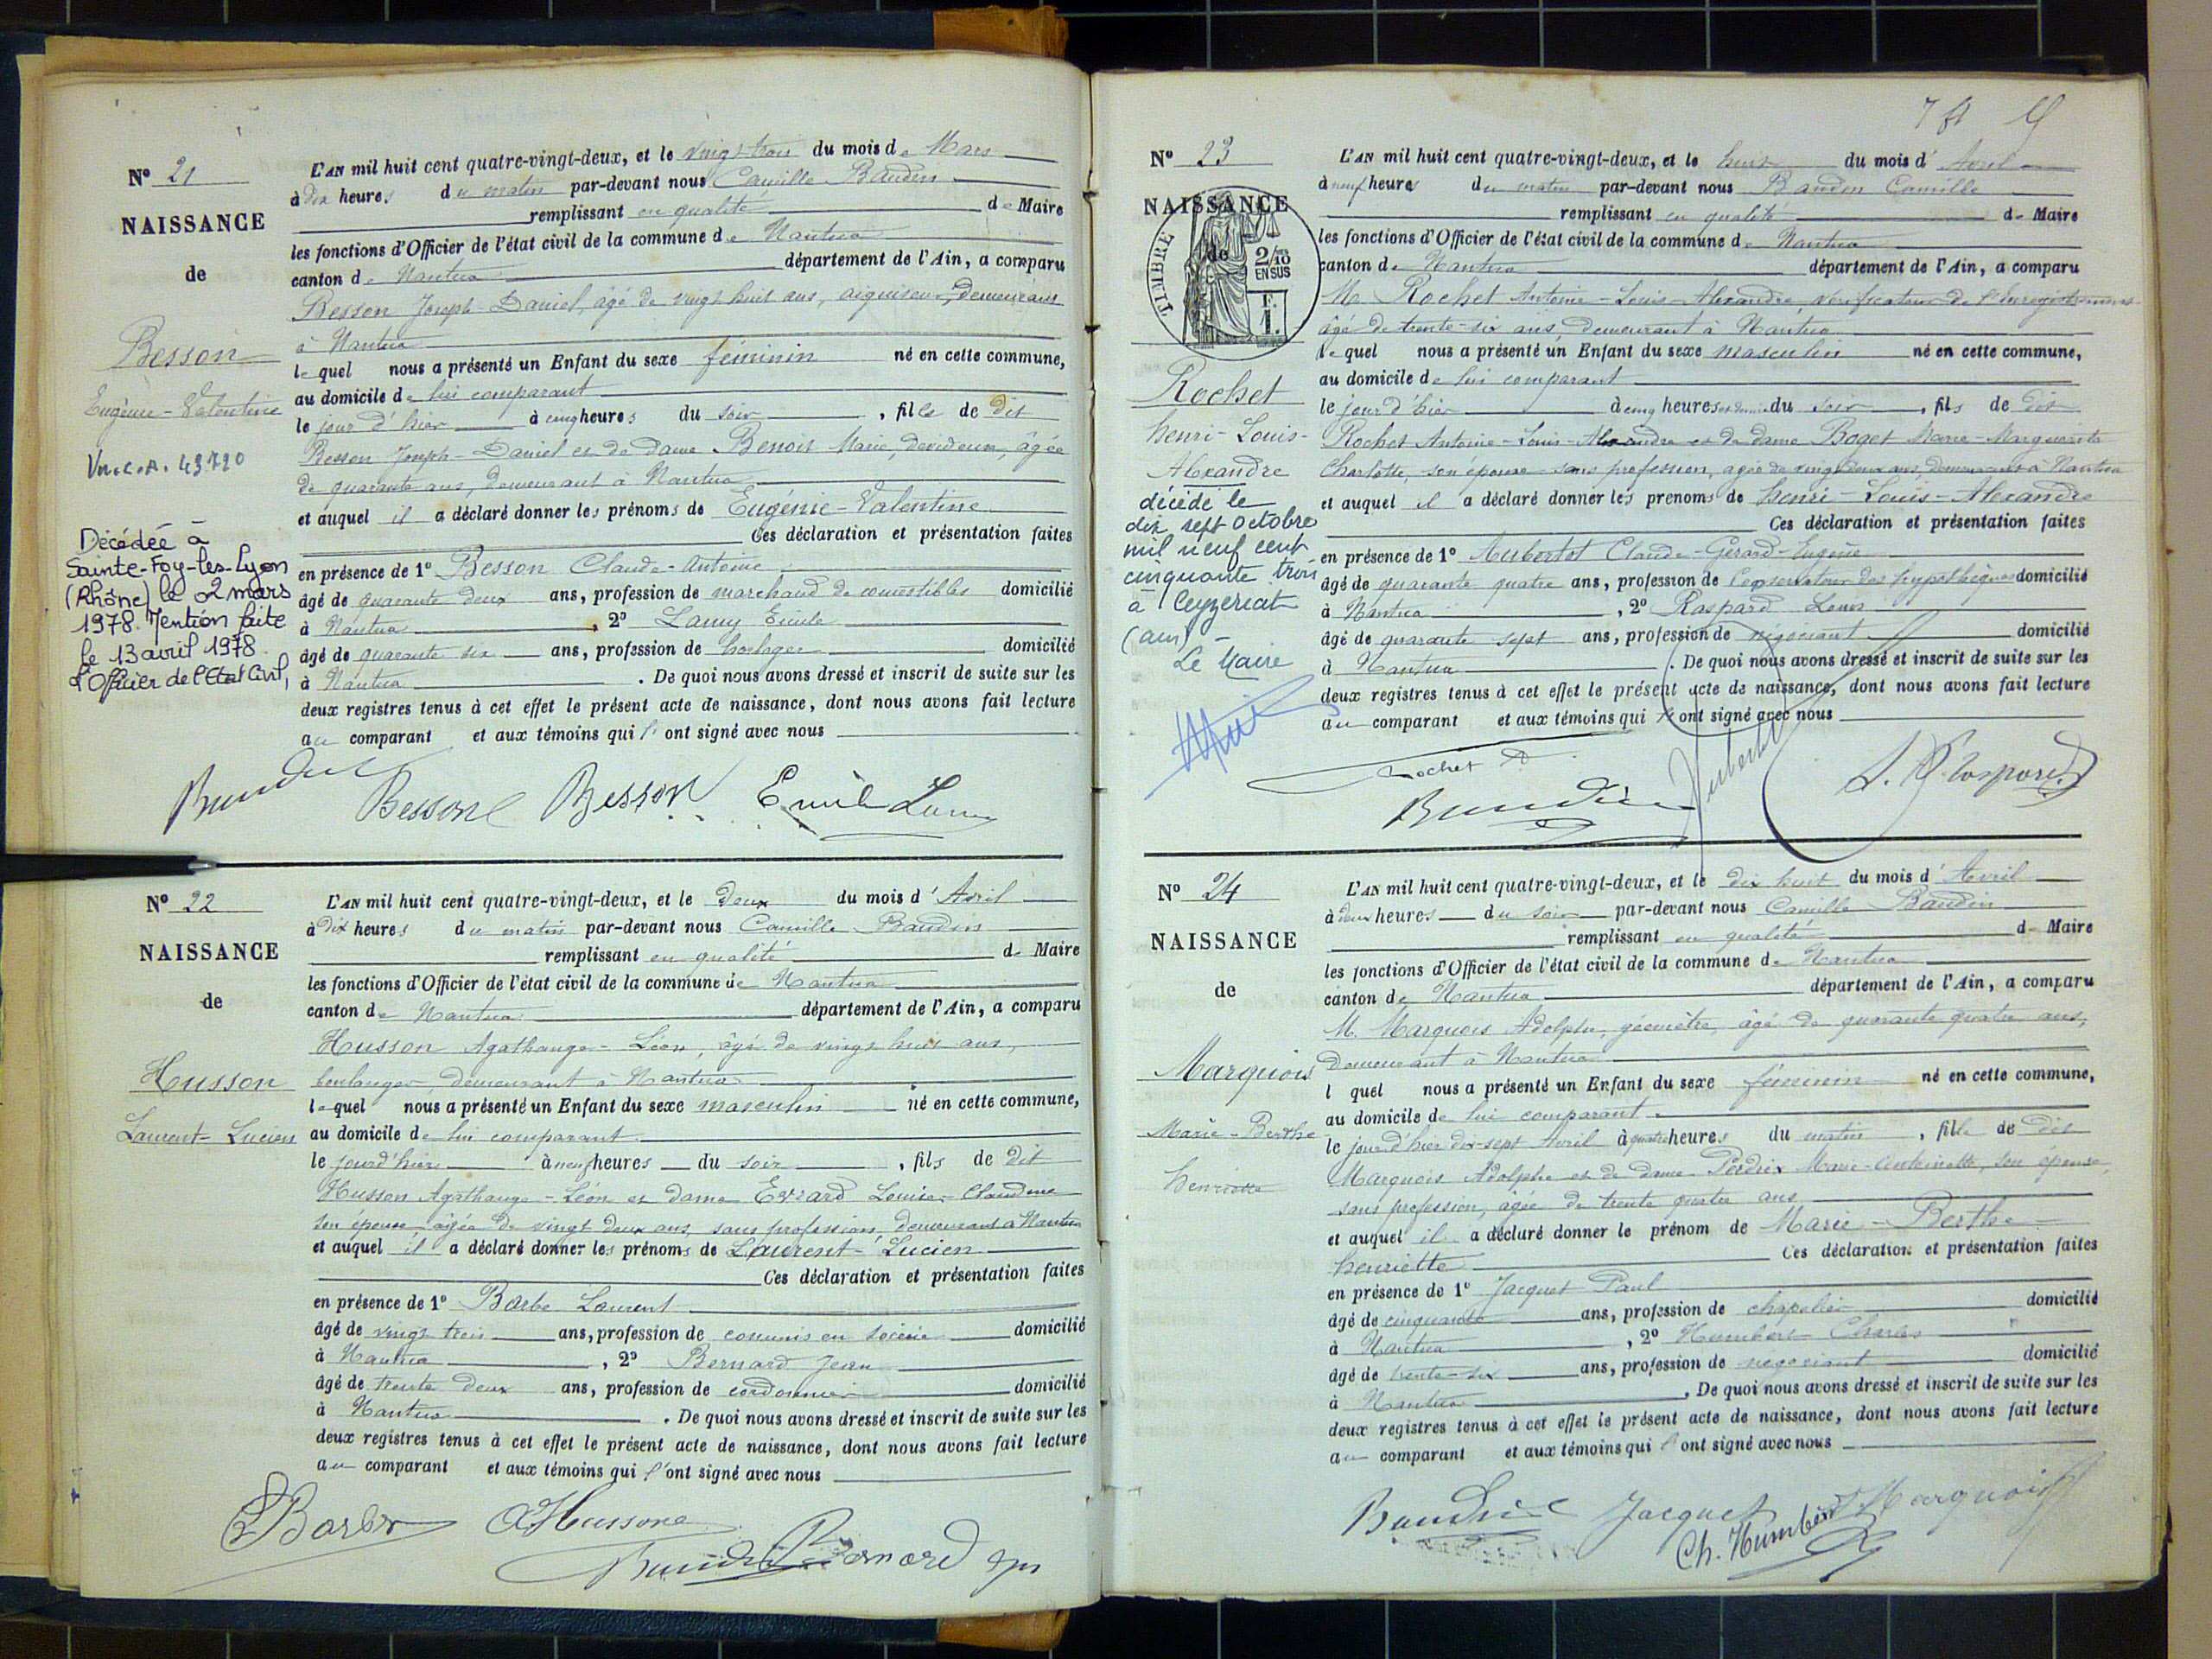 N° 21
NAISSANCE
de
Besson
Eugénie-Valentine
Décédée à
Sainte-Foy-lès-Lyon
(Rhône) le 02 mars
1978. Mention faite
le 13 avril 1978.
L'Officier de l'Etat Civil,
L'AN mil huit cent quatre-vingt-deux, et le vingt trois du mois de Mars
à dix heures du matin par-devant nous Camille Baudin
remplissant en qualité de Maire
les fonctions d'Officier de l'état civil de la commune de Nantua
canton de Nantua département de l'Ain, a comparu
Besson Joseph-Daniel, âgé de vingt huit ans, aiguiseur, demeurant
à Nantua
lequel nous a présenté un Enfant du sexe féminin né en cette commune,
au domicile de lui comparant
le jour d'hier à cinq heures du soir, fille de dit
Besson Joseph-Daniel et de dame Benoit Marie, devideuse, âgée
de quarante ans, demeurant à Nantua
et auquel il a déclaré donner les prénoms de Eugénie-Valentine
Ces déclaration et présentation faites
en présence de 1° Besson Claude-Antoine
âgé de quarante deux ans, profession de marchand de comestibles domicilié
à Nantua, 2° Lamy Emile
âgé de quarante six ans, profession de horloger domicilié
à Nantua. De quoi nous avons dressé et inscrit de suite sur les
deux registres tenus à cet effet le présent acte de naissance, dont nous avons fait lecture
au comparant et aux témoins qui l'ont signé avec nous
Baudin Besson Besson Emile Lamy
N° 22
NAISSANCE
de
Husson
Laurent-Lucien
L'AN mil huit cent quatre-vingt-deux, et le deux du mois d'Avril
à dix heures du matin par-devant nous Camille Baudin
remplissant en qualité de Maire
les fonctions d'Officier de l'état civil de la commune de Nantua
canton de Nantua département de l'Ain, a comparu
Husson Agathange-Léon, âgé de vingt huit ans,
boulanger, demeurant à Nantua
lequel nous a présenté un Enfant du sexe masculin né en cette commune,
au domicile de lui comparant
le jour d'hier à neuf heures du soir, fils de dit
Husson Agathange-Léon et dame Evrard Louise-Claudine
son épouse âgée de vingt deux ans, sans profession, demeurant à Nantua
et auquel il a déclaré donner les prénoms de Laurent-Lucien
Ces déclaration et présentation faites
en présence de 1° Barbe Laurent
âgé de vingt trois ans, profession de commis en soierie domicilié
à Nantua, 2° Bernard Jean
âgé de trente deux ans, profession de cordonnier domicilié
à Nantua. De quoi nous avons dressé et inscrit de suite sur les
deux registres tenus à cet effet le présent acte de naissance, dont nous avons fait lecture
au comparant et aux témoins qui l'ont signé avec nous
L Barbe A Husson
Baudin Bernard
N° 23
NAISSANCE
de
TIMBRE
2/10
EN SUS
F.
1.
Rochet
henri-Louis-
Alexandre
décédé le
dix sept octobre
mil neuf cent
cinquante trois
à Ceyzeriat
(ain) -
Le Maire
L'AN mil huit cent quatre-vingt-deux, et le huit du mois d'Avril
à neuf heures du matin par-devant nous Baudin Camille
remplissant en qualité de Maire
les fonctions d'Officier de l'état civil de la commune de Nantua
canton de Nantua département de l'Ain, a comparu
M. Rochet Antoine-Louis-Alexandre, vérificateur de l'Enregistrement
âgé de trente-six ans, demeurant à Nantua
lequel nous a présenté un Enfant du sexe masculin né en cette commune,
au domicile de lui comparant
le jour d'hier à cinq heures et demie du soir, fils de dit
Rochet Antoine-Louis-Alexandre et de dame Boget Marie-Marguerite
Charlotte, son épouse sans profession, âgée de vingt deux ans, demeurant à Nantua
et auquel il a déclaré donner les prénoms de henri-Louis-Alexandre
Ces déclaration et présentation faites
en présence de 1° Aubertot Claude-Gérard-Eugène
âgé de quarante quatre ans, profession de Conservateur des hypothèques domicilié
à Nantua, 2° Raspard Louis
âgé de quarante sept ans, profession de négociant domicilié
à Nantua. De quoi nous avons dressé et inscrit de suite sur les
deux registres tenus à cet effet le présent acte de naissance, dont nous avons fait lecture
au comparant et aux témoins qui l'ont signé avec nous
Rochet A
Baudin Aubertot L. Raspard
N° 24
NAISSANCE
de
Marquois
Marie-Berthe
henriette
L'AN mil huit cent quatre-vingt-deux, et le dix huit du mois d'Avril
à deux heures du soir par-devant nous Camille Baudin
remplissant en qualité de Maire
les fonctions d'Officier de l'état civil de la commune de Nantua
canton de Nantua département de l'Ain, a comparu
M. Marquois Adolphe, géomètre, âgé de quarante quatre ans,
demeurant à Nantua
l quel nous a présenté un Enfant du sexe féminin né en cette commune,
au domicile de lui comparant
le jour d'hier dix-sept Avril à quatre heures du matin, fille de dit
Marquois Adolphe et de dame Perdrix Marie-Antoinette, son épouse,
sans profession, âgée de trente quatre ans
et auquel il a déclaré donner le prénom de Marie-Berthe
henriette Ces déclaration et présentation faites
en présence de 1° Jacquet Paul
âgé de cinquante ans, profession de chapelier domicilié
à Nantua, 2° Humbert Charles
âgé de trente-six ans, profession de négociant domicilié
à Nantua. De quoi nous avons dressé et inscrit de suite sur les
deux registres tenus à cet effet le présent acte de naissance, dont nous avons fait lecture
au comparant et aux témoins qui l'ont signé avec nous
Baudin Jacquet Marquois
Ch. Humbert